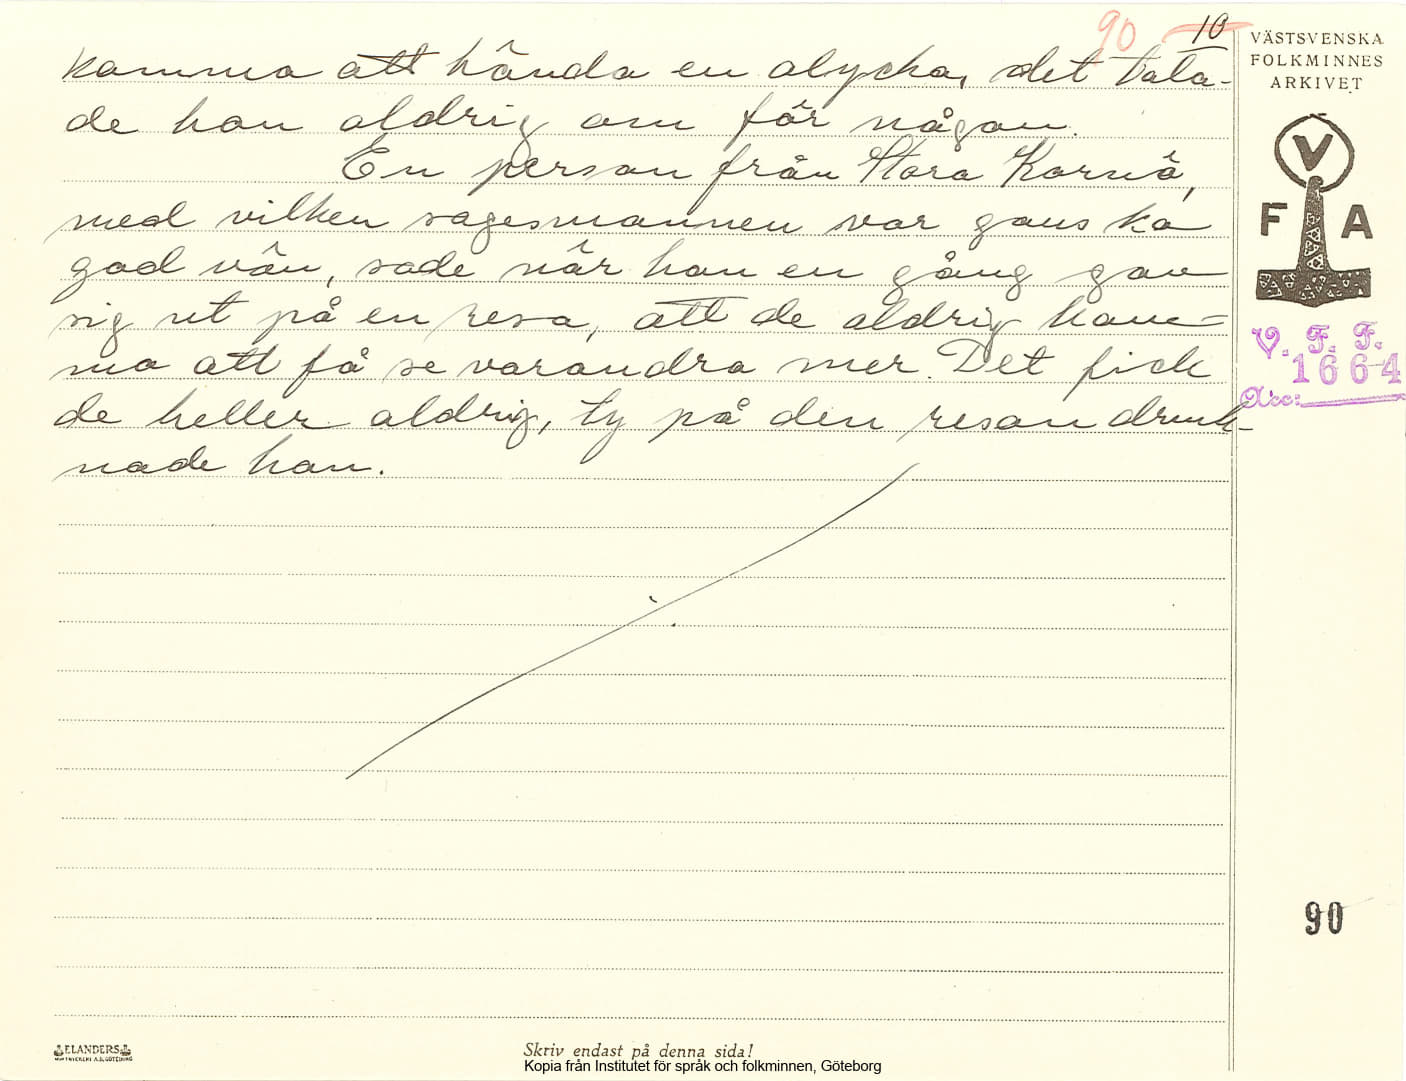 90 10
komma att hända en olycka, det tala-
de han aldrig om för någon.
En person från Stora Kornö,
med vilken sagesmannen var ganska
god vän, sade när han en gång gav
sig ut på en resa, att de aldrig kom-
mo att få se varandra mer. Det fick
de heller aldrig, ty på den resan drunk-
nade han.
VÄSTSVENSKA
FOLKMINNES
ARKIVET
V
F A
V. F. F.
1664
Acc:
90
ELANDERS
Skriv endast på denna sida!
Kopia från Institutet för språk och folkminnen, Göteborg